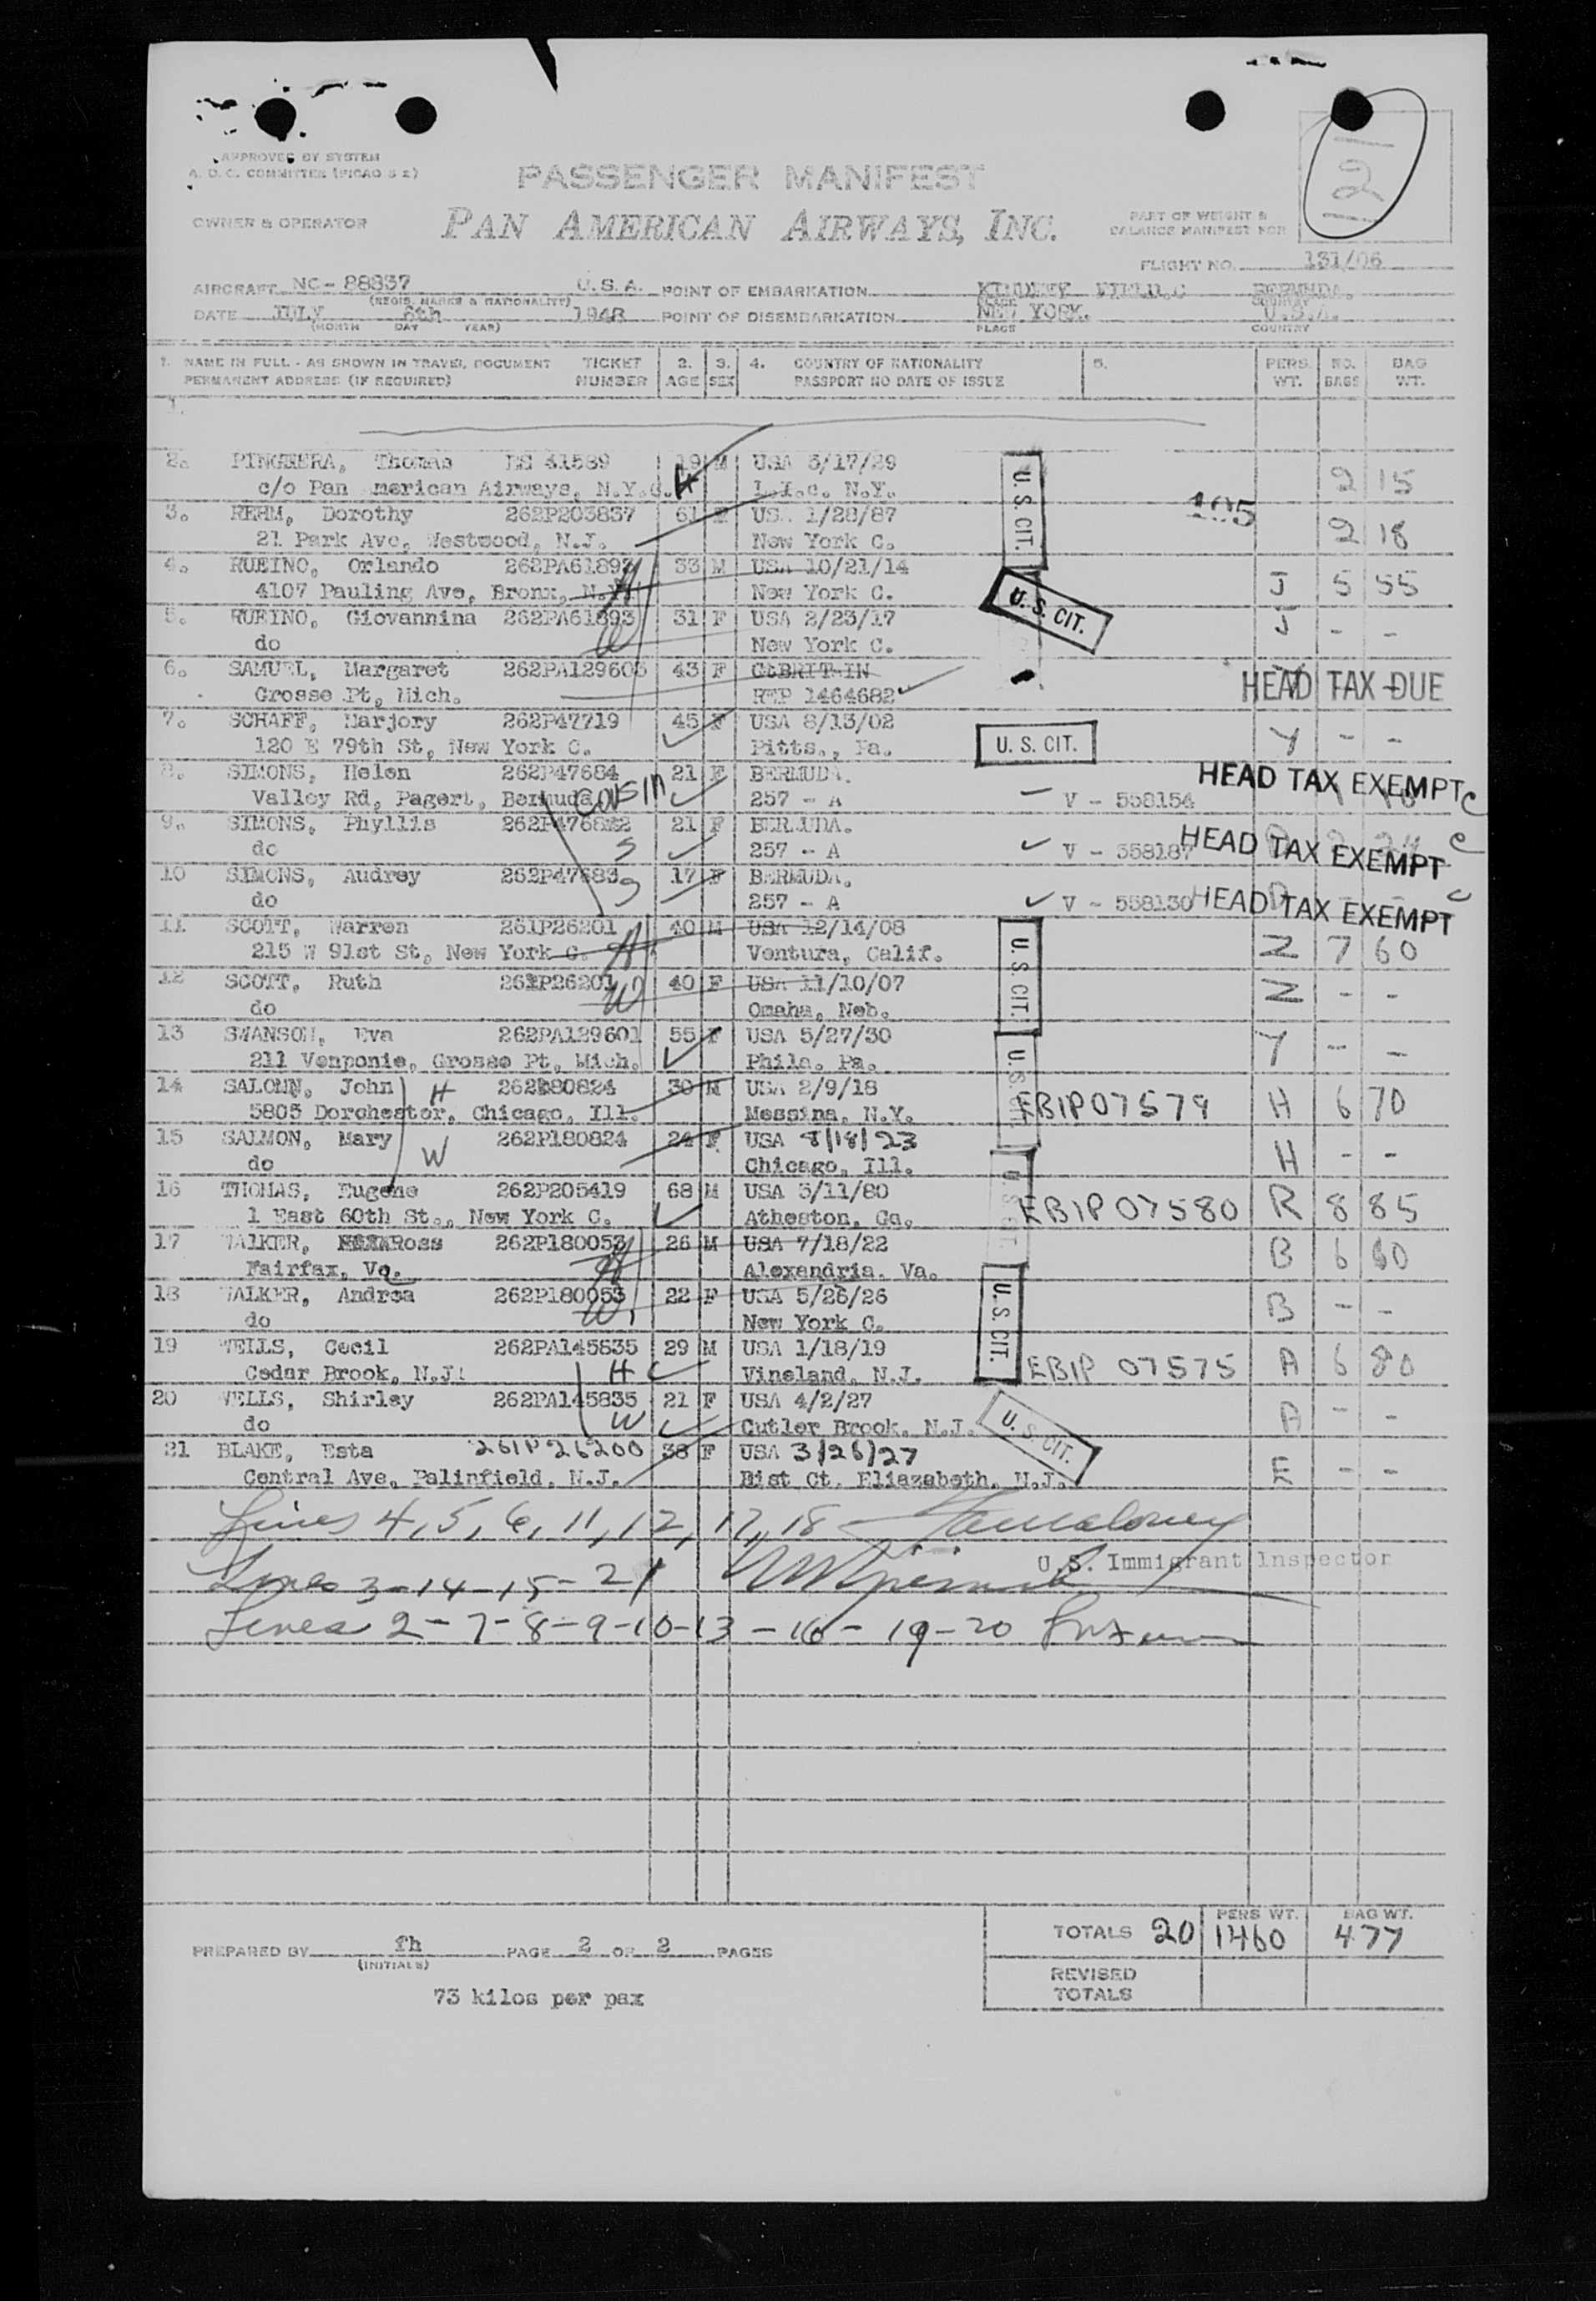 121
APPROVED BY SYSTEM
A. O. C. COMMITTEE (PICAO S 2)
PASSENGER MANIFEST
OWNER & OPERATOR
PAN AMERICAN AIRWAYS, INC.
PART OF WEIGHT &
BALANCE MANIFEST FOR
FLIGHT NO. 131/06
AIRCRAFT NC-88837 U.S.A. POINT OF EMBARKATION KINDLEY FIELD. BERMUDA.
(REGIS. MARKS & NATIONALITY) PLACE COUNTRY
DATE JULY 6th 1948 POINT OF DISEMBARKATION NEW YORK. U.S.A.
(MONTH DAY YEAR) PLACE COUNTRY
1. NAME IN FULL - AS SHOWN IN TRAVEL DOCUMENT TICKET 2. 3. 4. COUNTRY OF NATIONALITY 5. PERS. NO. BAG
PERMANENT ADDRESS (IF REQUIRED) NUMBER AGE SEX PASSPORT NO DATE OF ISSUE WT. BAGS WT.
1.
2. Thomas 41589 19 M USA 3/17/29 U. S. CIT.
c/o Pan merican Airways, N.Y.c. L.I.c. N.Y. 2 15
3. REHM, Dorothy 262P203837 61 F US. 1/28/87 105
21 Park Ave, Westwood, N.J. New York C. 2 18
4. RUBINO, Orlando 262PA61892 33 M USA 10/21/14
4107 Pauling Ave, Bronx, N.Y. H New York C. U. S. CIT. J 5 55
5. RUBINO, Giovannina 262PA61893 31 F USA 2/23/17 J - -
do W New York C.
6. SAMUEL, Margaret 262PA129603 43 F GtBRITAIN
Grosse Pt, Mich. REP 1464682 HEAD TAX DUE
7. SCHAFF, Marjory 262P47719 45 F USA 8/13/02
120 E 79th St, New York C. Pitts., Pa. U. S. CIT. Y - -
8. SIMONS, Helen 262P47684 21 F BERMUDA. HEAD TAX EXEMPT C
Valley Rd, Pagert, Bermuda COUSIN 257 - A V - 558154
9. SIMONS, Phyllis 262P47682 21 F BERMUDA. HEAD TAX EXEMPT C
do S 257 - A V - 558187
10 SIMONS, Audrey 262P47683 17 F BERMUDA.
do S 257 - A V - 558130 HEAD TAX EXEMPT C
11 SCOTT, Warren 261P26201 40 M USA 12/14/08 U. S. CIT.
215 W 91st St, New York C. H Ventura, Calif. N 7 60
12 SCOTT, Ruth 261P26201 40 F USA 11/10/07
do W Omaha, Neb. N - -
13 SWANSON, Eva 262PA129601 55 F USA 5/27/30 U. S. CIT.
211 Venponie, Grosse Pt, Mich. Phila. Pa. Y - -
14 John H 262P180824 30 M USA 2/9/18
5805 Dorchester, Chicago, Ill. Messina, N.Y. EBIP07579 H 6 70
15 SALMON, Mary 262P180824 24 F USA 8/18/23
do W Chicago, Ill. H - -
16 THOMAS, Eugene 262P205419 68 M USA 3/11/80 U. S. CIT.
1 East 60th St., New York C. Atheston, Ga. EBIP 07580 R 8 85
17 WALKER, Ross 262P180053 26 M USA 7/18/22
Fairfax, Va. H Alexandria. Va. B 6 60
18 WALKER, Andrea 262P180053 22 F USA 5/26/26 U. S. CIT.
do W New York C. B - -
19 WELLS, Cecil 262PA145835 29 M USA 1/18/19
Cedar Brook, N.J. H Vineland, N.J. EBIP 07575 A 6 80
20 WELLS, Shirley 262PA145835 21 F USA 4/2/27
do W Cutler Brook, N.J. U. S. CIT. A - -
21 BLAKE, Esta 261P26200 38 F USA 3/26/27
Central Ave, Palinfield, N.J. Dist Ct. Eliazabeth, N.J. E - -
Lines 4, 5, 6, 11, 12, 17, 18
U. S. Immigrant Inspector
Lines 3-14-15-21
Lines 2-7-8-9-10-13-16-19-20
TOTALS 20 PERS WT. 1460 BAG WT. 477
PREPARED BY fh PAGE 2 OF 2 PAGES
(INITIALS)
REVISED
TOTALS
73 kilos per pax